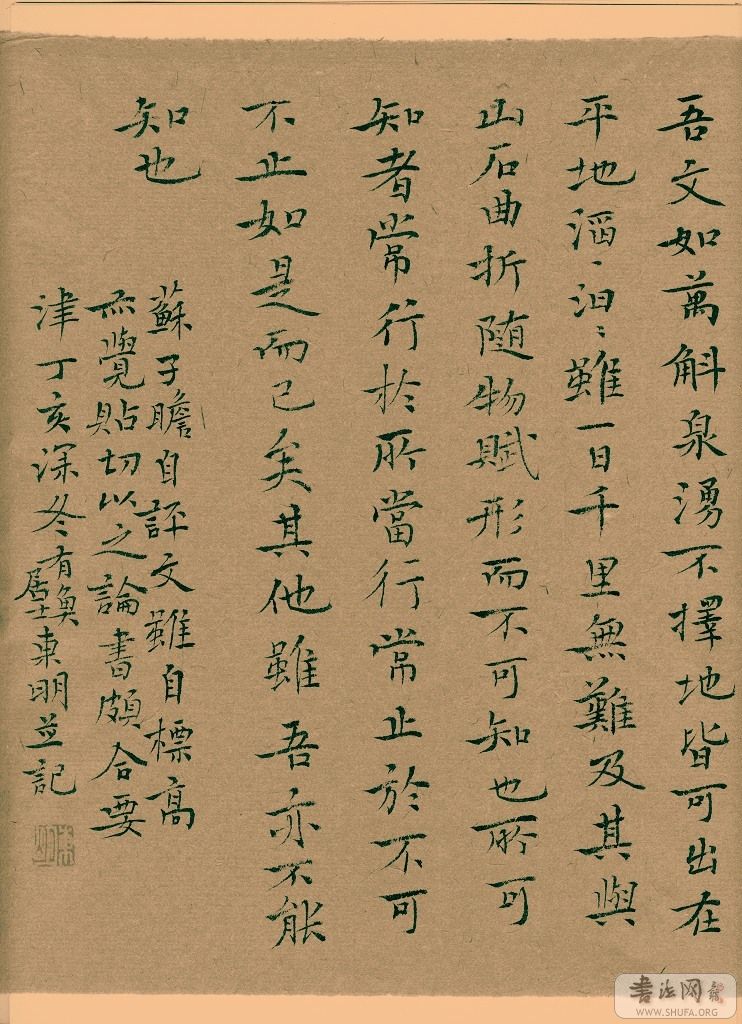 吾文如萬斛泉湧不擇地皆可出在
平地滔〻汩〻雖一日千里無難及其與
山石曲折随物賦形而不可知也所可
知者常行於所當行常止於不可
不止如是而已矣其他雖吾亦不能
知也
蘇子瞻自評文雖自標高
亦覺貼切以之論書頗合要
津丁亥深冬有奐居士東明並記
书法网
WWW.SHUFA.ORG